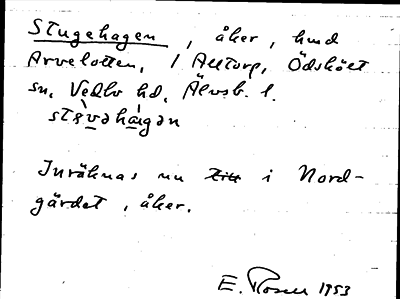 Stugehagen, åker, hmd
Arvelotten, 1 Alltorp, Ödskölt
sn, Vedbo hd, Älvsb. l.
stʉvəha̱i̯gən
Inräknas nu i Nord-
gärdet, åker.
E. Rosen 1953